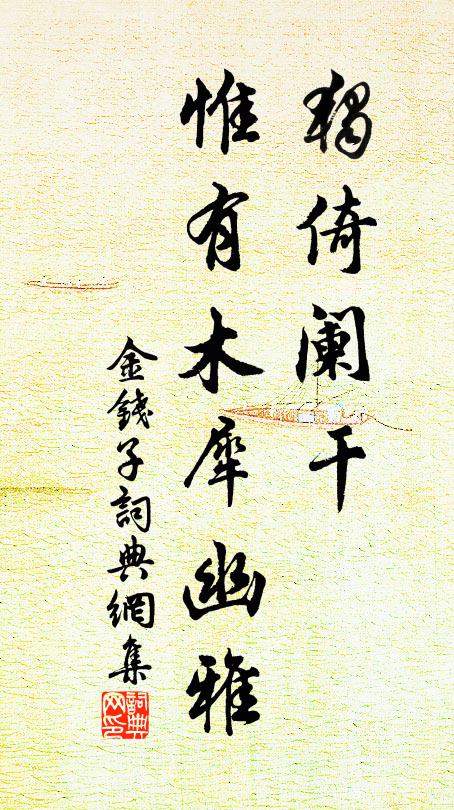 獨倚阑干
惟有木犀幽雅
金錢子詞典網集
詞典
网印